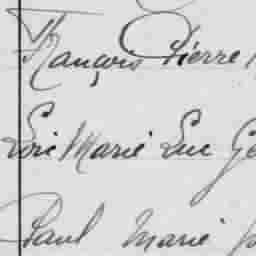 François Pierre
Loïc Marie Luc Ge
Paul Marie